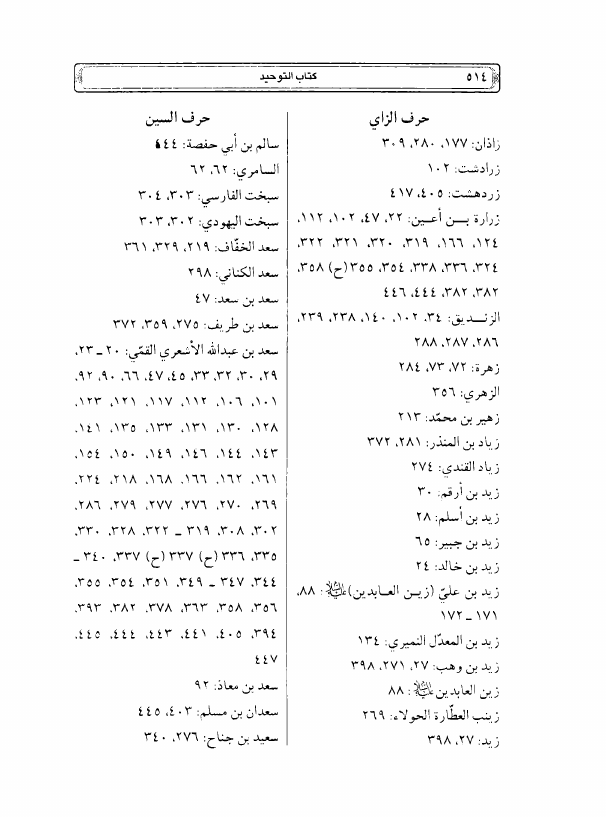 ٥١٤
كتاب التوحيد
حرف الزاي
زاذان: ١٧٧، ٢٨٠، ٣٠٩
زرادشت: ١٠٢
زردهشت: ٤٠٥، ٤١٧
زرارة بـــن أعــين: ٢٢، ٤٧، ١٠٢، ١١٢،
١٢٤، ١٦٦، ٣١٩، ٣٢٠، ٣٢١، ٣٢٢،
٣٢٤، ٣٣٦، ٣٣٨، ٣٥٤، ٣٥٥ (ح) ٣٥٨،
٣٨٢، ٣٨٢، ٤٤٤، ٤٤٦
الزنــديق: ٣٤، ١٠٢، ١٤٠، ٢٣٨، ٢٣٩،
٢٨٦، ٢٨٧، ٢٨٨
زهرة: ٧٢، ٧٣، ٢٨٤
الزهري: ٣٥٦
زهير بن محمّد: ٢١٣
زياد بن المنذر: ٢٨١، ٣٧٢
زياد القندي: ٢٧٤
زيد بن أرقم: ٣٠
زيد بن أسلم: ٢٨
زيد بن جبير: ٦٥
زيد بن خالد: ٢٤
زيد بن عليّ (زيـن العـابدين) عليه السلام: ٨٨،
١٧١ ـ ١٧٢
زيد بن المعدّل النميري: ١٣٤
زيد بن وهب: ٢٧، ٢٧١، ٣٩٨
زين العابدين عليه السلام: ٨٨
زينب العطّارة الحولاء: ٢٦٩
زيد: ٢٧، ٣٩٨
حرف السين
سالم بن أبي حفصة: ٤٤٤
السامري: ٦٢، ٦٢
سبخت الفارسي: ٣٠٣، ٣٠٤
سبخت اليهودي: ٣٠٢، ٣٠٣
سعد الخفّاف: ٢١٩، ٣٢٩، ٣٦١
سعد الكناني: ٢٩٨
سعد بن سعد: ٤٧
سعد بن طريف: ٢٧٥، ٣٥٩، ٣٧٢
سعد بن عبدالله الأشعري القمّي: ٢٠ ـ ٢٣،
٢٩، ٣٠، ٣٢، ٣٣، ٤٥، ٤٧، ٦٦، ٩٠، ٩٢،
١٠١، ١٠٦، ١١٢، ١١٧، ١٢١، ١٢٣،
١٢٨، ١٣٠، ١٣١، ١٣٣، ١٣٥، ١٤١،
١٤٣، ١٤٤، ١٤٦، ١٤٩، ١٥٠، ١٥٤،
١٦١، ١٦٢، ١٦٦، ١٦٨، ٢١٨، ٢٢٤،
٢٦٩، ٢٧٠، ٢٧٦، ٢٧٧، ٢٧٩، ٢٨٦،
٣٠٢، ٣٠٨، ٣١٩ ـ ٣٢٢، ٣٢٨، ٣٣٠،
٣٣٥، ٣٣٦ (ح) ٣٣٧ (ح) ٣٣٧، ٣٤٠ ـ
٣٤٤، ٣٤٧ ـ ٣٤٩، ٣٥١، ٣٥٤، ٣٥٥،
٣٥٦، ٣٥٨، ٣٦٣، ٣٧٨، ٣٨٢، ٣٩٣،
٣٩٤، ٤٠٥، ٤٤١، ٤٤٣، ٤٤٤، ٤٤٥،
٤٤٧
سعد بن معاذ: ٩٢
سعدان بن مسلم: ٤٠٣، ٤٤٥
سعيد بن جناح: ٢٧٦، ٣٤٠